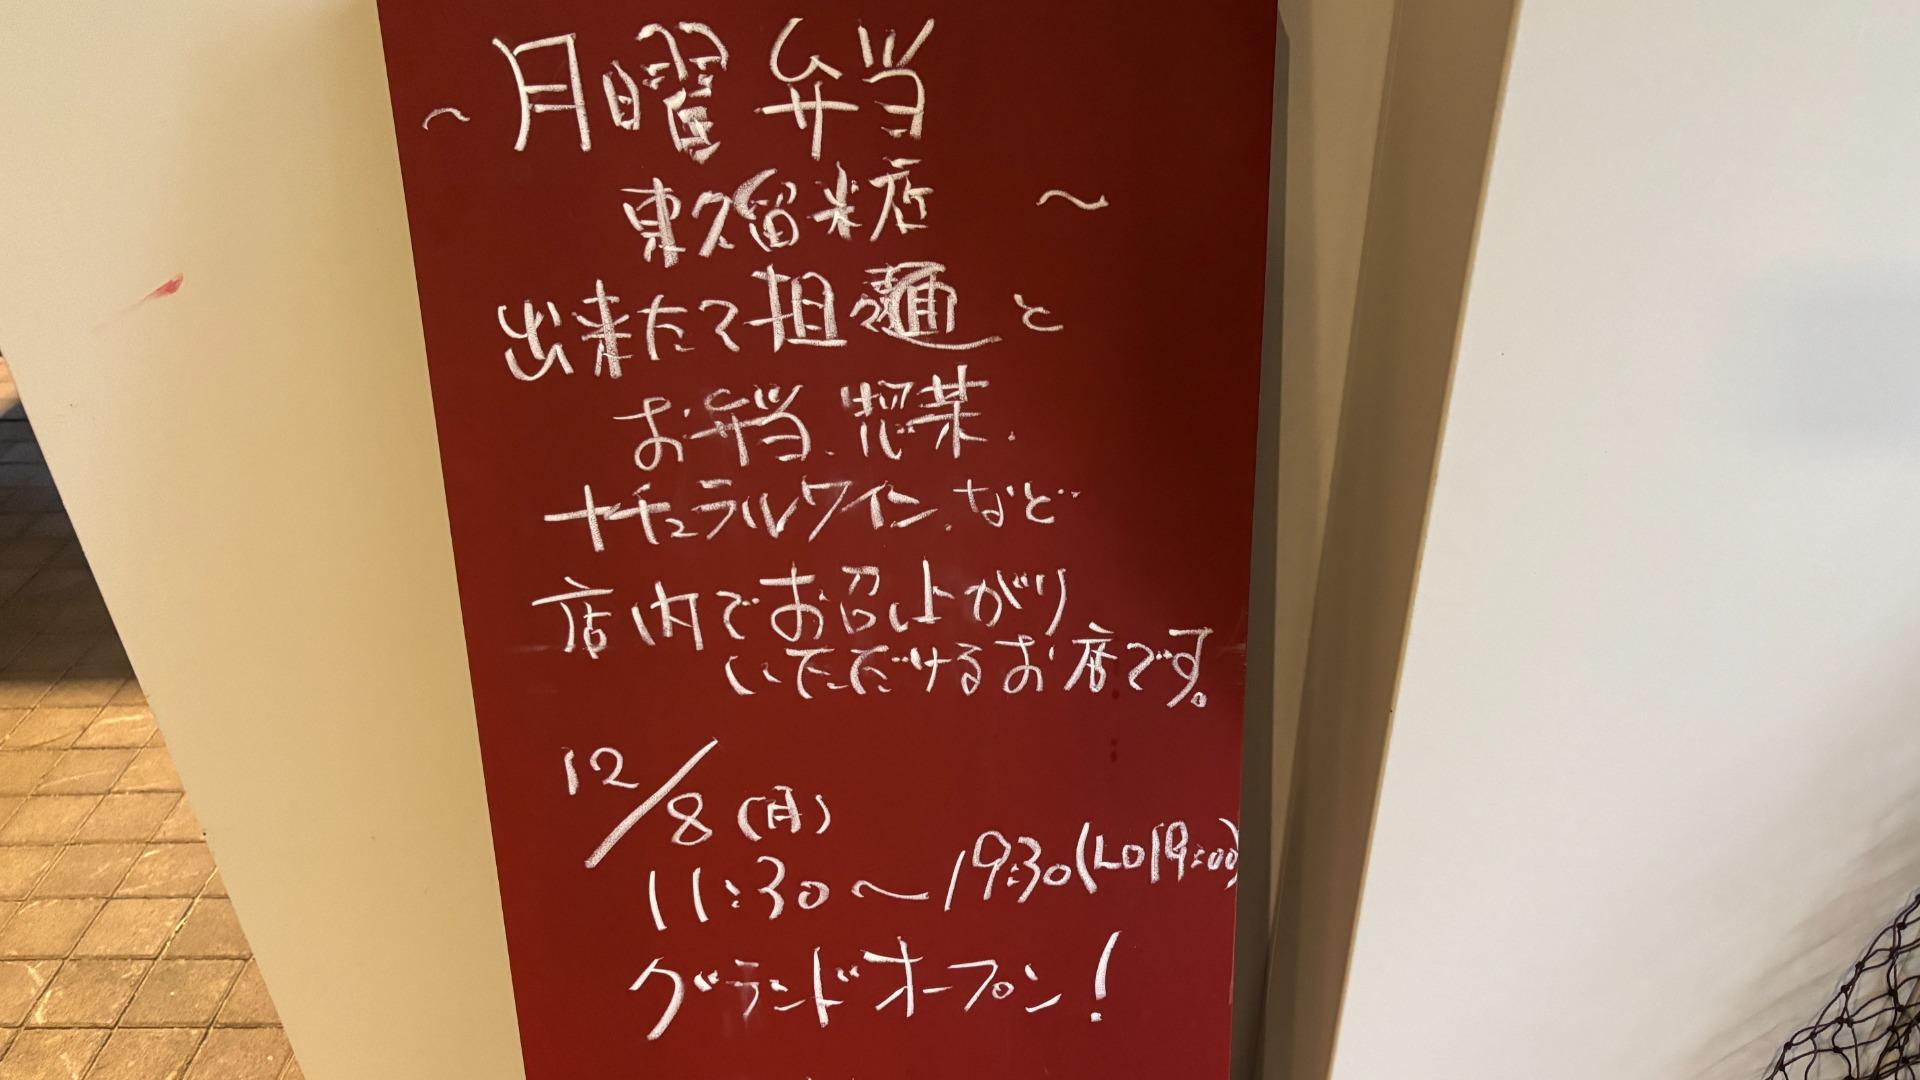 ～月曜弁当
東久留米店 ～
出来たて担々麺と
お弁当、惣菜、
ナチュラルワイン、など
店内でお召し上がり
いただけるお店です。
12/8(月)
11:30～19:30(LO19:00)
グランドオープン！